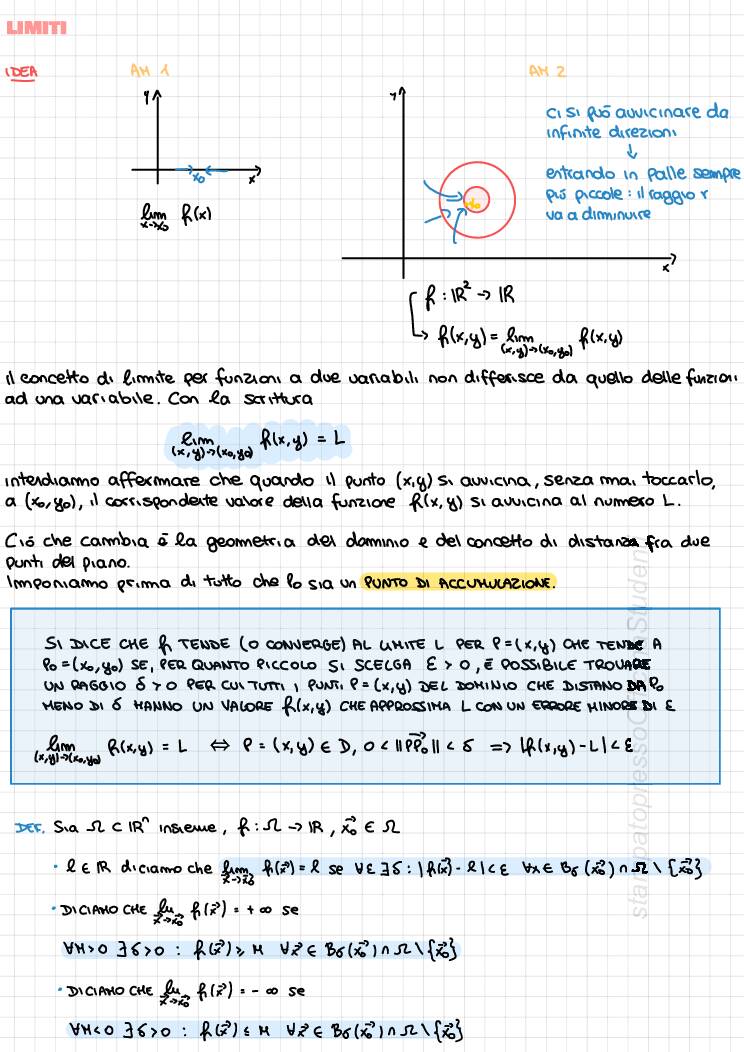 LIMITI
IDEA
AM 1
AM 2
y
x₀
x
lim x→x₀ f(x)
y
x₀
x
ci si può avvicinare da
infinite direzioni
↓
entrando in palle sempre
più piccole: il raggio r
va a diminuire
f : ℝ² → ℝ
↳ f(x,y) = lim (x,y)→(x₀,y₀) f(x,y)
il concetto di limite per funzioni a due variabili non differisce da quello delle funzioni
ad una variabile. Con la scrittura
lim (x,y)→(x₀,y₀) f(x,y) = L
intendiamo affermare che quando il punto (x,y) si avvicina, senza mai toccarlo,
a (x₀,y₀), il corrispondente valore della funzione f(x,y) si avvicina al numero L.
Ciò che cambia è la geometria del dominio e del concetto di distanza fra due
punti del piano.
Imponiamo prima di tutto che P₀ sia un PUNTO DI ACCUMULAZIONE.
SI DICE CHE f TENDE (O CONVERGE) AL LIMITE L PER P=(x,y) CHE TENDE A
P₀=(x₀,y₀) SE, PER QUANTO PICCOLO SI SCELGA ε > 0, È POSSIBILE TROVARE
UN RAGGIO δ > 0 PER CUI TUTTI I PUNTI P=(x,y) DEL DOMINIO CHE DISTANO DA P₀
MENO DI δ HANNO UN VALORE f(x,y) CHE APPROSSIMA L CON UN ERRORE MINORE DI ε
lim (x,y)→(x₀,y₀) f(x,y) = L ⇔ P = (x,y) ∈ D, 0 < ||PP₀|| < δ ⇒ |f(x,y) - L| < ε
DEF. Sia Ω ⊂ ℝⁿ insieme, f : Ω → ℝ, x⃗₀ ∈ Ω
• l ∈ ℝ diciamo che lim x⃗→x⃗₀ f(x⃗) = l se ∀ε ∃δ : |f(x⃗) - l| < ε ∀x ∈ Bδ(x⃗₀) ∩ Ω \ {x⃗₀}
• DICIAMO CHE lim x⃗→x⃗₀ f(x⃗) = +∞ se
∀M>0 ∃δ>0 : f(x⃗) ≥ M ∀x⃗ ∈ Bδ(x⃗₀) ∩ Ω \ {x⃗₀}
• DICIAMO CHE lim x⃗→x⃗₀ f(x⃗) = -∞ se
∀M<0 ∃δ>0 : f(x⃗) ≤ M ∀x⃗ ∈ Bδ(x⃗₀) ∩ Ω \ {x⃗₀}